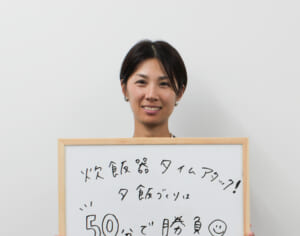 炊飯器タイムアタック!
夕飯づくりは
50分で勝負